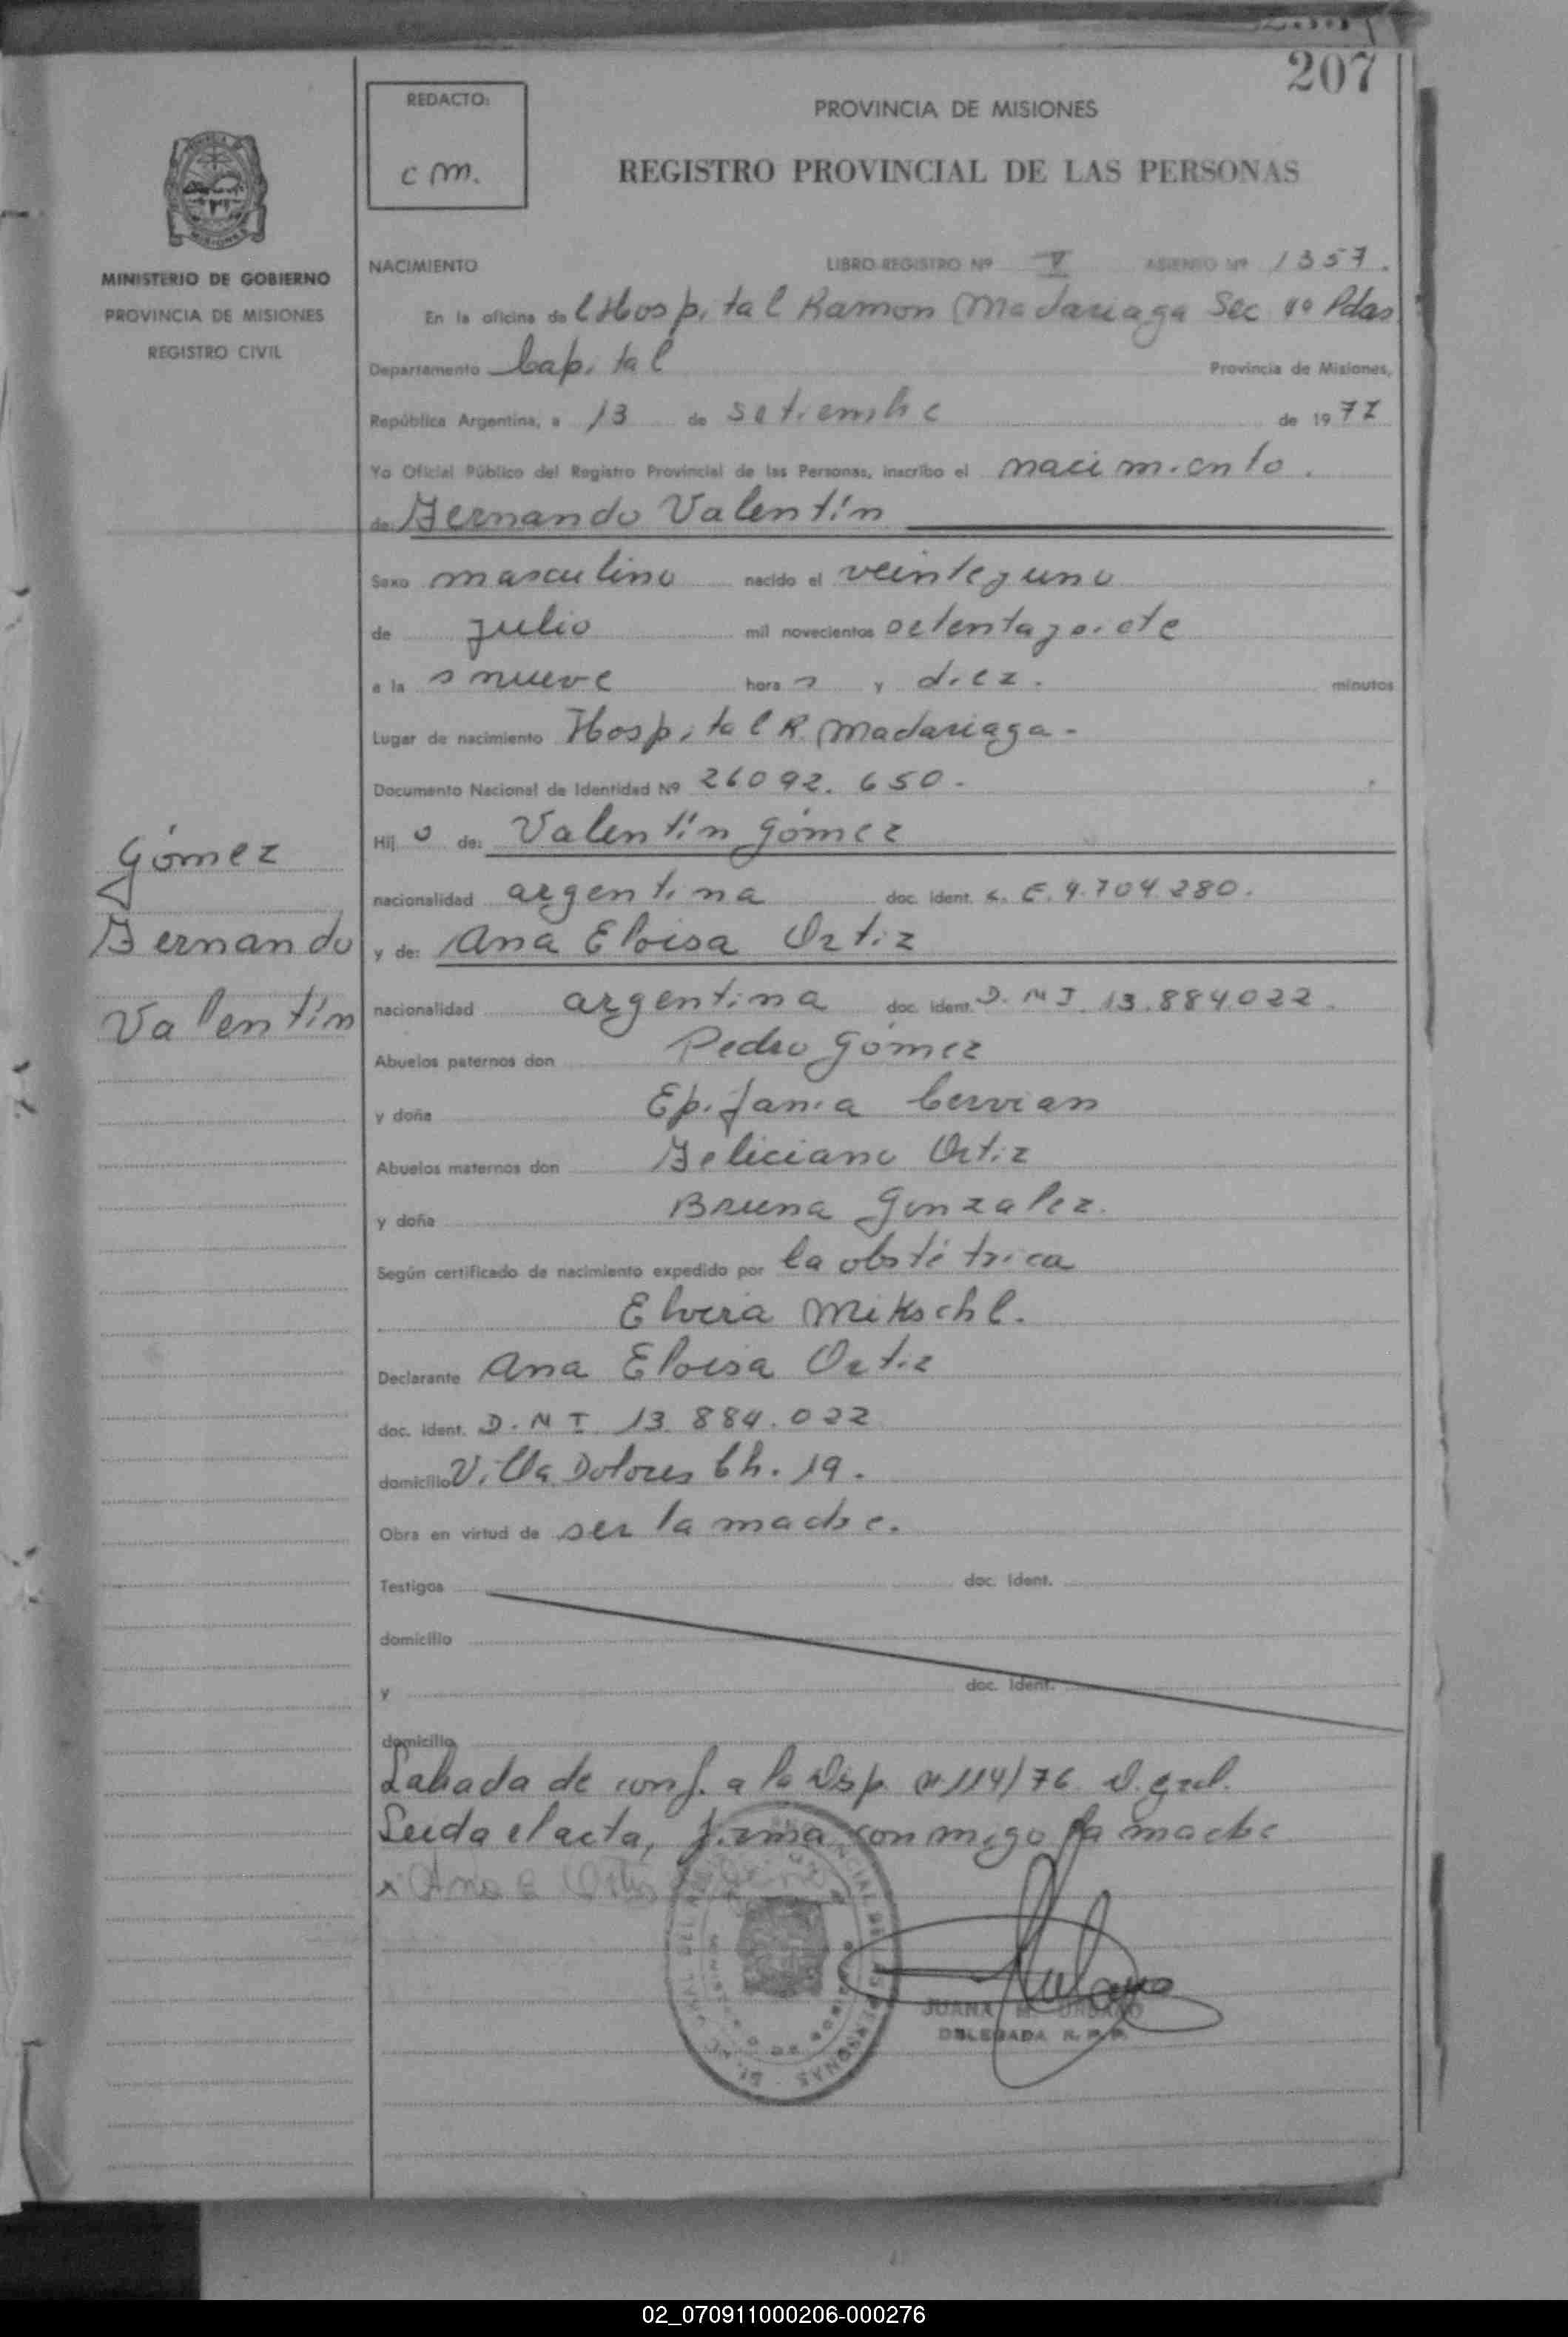 207
REDACTO:
c m.
PROVINCIA DE MISIONES
REGISTRO PROVINCIAL DE LAS PERSONAS
MINISTERIO DE GOBIERNO
PROVINCIA DE MISIONES
REGISTRO CIVIL
NACIMIENTO LIBRO REGISTRO Nº V ASIENTO Nº 1357.
En la oficina de l Hospital Ramon Madariaga Sec 4º Pdas
Departamento Capital Provincia de Misiones,
República Argentina, a 13 de setiembre de 1977
Yo Oficial Público del Registro Provincial de las Personas, inscribo el nacimiento.
de: Fernando Valentín
Sexo masculino nacido el veinteyuno
de julio mil novecientos setentaysiete
a la s nueve hora s y diez. minutos
Lugar de nacimiento Hospital R. Madariaga -
Documento Nacional de Identidad Nº 26092.650.
Hij o de: Valentín Gómez
nacionalidad argentina doc. ident. C. E. 4.704.280.
y de: Ana Eloisa Ortiz
nacionalidad argentina doc. ident. D. N I. 13.884.022.
Gómez
Fernando
Valentín
Abuelos paternos don Pedro Gómez
y doña Epifania Cervian
Abuelos maternos don Feliciano Ortiz
y doña Bruna Gonzalez.
Según certificado de nacimiento expedido por la obstétrica
Elvira Mikschl.
Declarante Ana Eloisa Ortiz
doc. ident. D. N I. 13.884.022
domicilio Villa Dolores Ch. 19.
Obra en virtud de ser la madre.
Testigos doc. ident.
domicilio
y doc. ident.
domicilio
Labada de conf. a la Disp. nº 114/76 D. gral.
Leida el acta, firma conmigo la madre
Ana E Ortiz
JUANA M. URBANO
DELEGADA R. P. P.
02_070911000206-000276